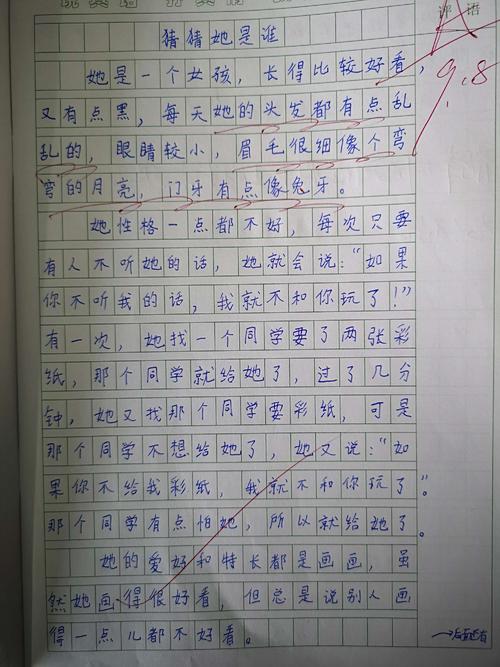 评语
猜猜她是谁
她是一个女孩，长得比较好看，
又有点黑，每天她的头发都有点乱
乱的，眼睛较小，眉毛很细像个弯
弯的月亮，门牙有点像兔牙。
她性格一点都不好，每次只要
有人不听她的话，她就会说：“如果
你不听我的话，我就不和你玩了！”
有一次，她找一个同学要了两张彩
纸，那个同学就给她了，过了几分
钟，她又找那个同学要彩纸，可是
那个同学不想给她了，她又说：“如
果你不给我彩纸，我就不和你玩了”。
那个同学有点怕她，所以就给她了。
她的爱好和特长都是画画，虽
然她画得很好看，但总是说别人画
得一点儿都不好看。
→后面还有
9.8